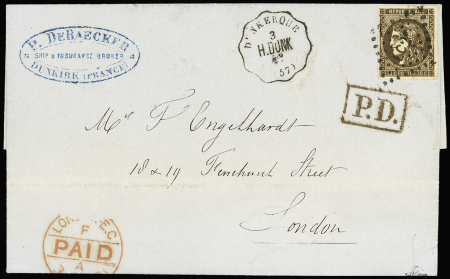 P. DEBAECKER
SHIP & INSURANCE BROKER
DUNKIRK (FRANCE)
DUNKERQUE
3
H.DUNK
(57)
P.D.
Mr F Engelhardt
18 & 19 Fenchurch Street
London
F
PAID